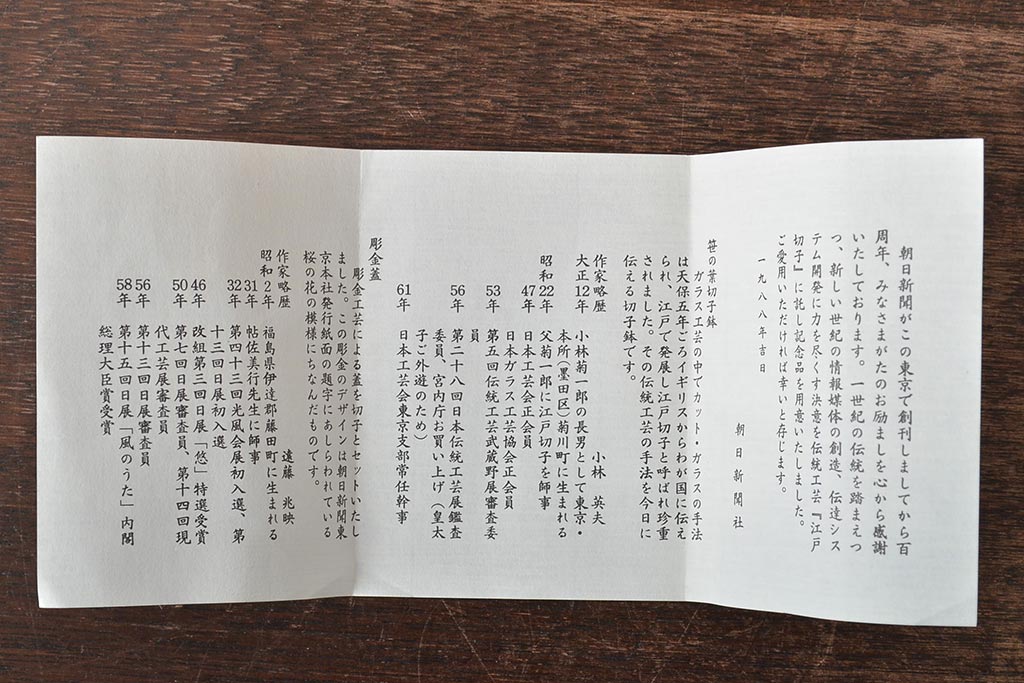 朝日新聞がこの東京で創刊しましてから百
周年、みなさまがたのお励ましを心から感謝
いたしております。一世紀の伝統を踏まえつ
つ、新しい世紀の情報媒体の創造、伝達シス
テム開発に力を尽くす決意を伝統工芸『江戸
切子』に託し記念品を用意いたしました。
ご愛用いただければ幸いと存じます。
一九八八年吉日
朝日新聞社
笹の葉切子鉢
ガラス工芸の中でカット・ガラスの手法
は天保五年ごろイギリスからわが国に伝え
られ、江戸で発展し江戸切子と呼ばれ珍重
されました。その伝統工芸の手法を今日に
伝える切子鉢です。
作家略歴 小林 英夫
大正12年 小林菊一郎の長男として東京・
本所(墨田区)菊川町に生まれる
昭和22年 父菊一郎に江戸切子を師事
47年 日本工芸会正会員
日本ガラス工芸協会正会員
53年 第五回伝統工芸武蔵野展審査委
員
56年 第二十八回日本伝統工芸展鑑査
委員、宮内庁お買い上げ(皇太
子ご外遊のため)
61年 日本工芸会東京支部常任幹事
彫金蓋
彫金工芸による蓋を切子とセットいたし
ました。この彫金のデザインは朝日新聞東
京本社発行紙面の題字にあしらわれている
桜の花の模様にちなんだものです。
作家略歴 遠藤 兆映
昭和2年 福島県伊達郡藤田町に生まれる
31年 帖佐美行先生に師事
32年 第四十三回光風会展初入選、第
十三回日展初入選
46年 改組第三回日展「悠」特選受賞
50年 第七回日展審査員、第十四回現
代工芸展審査員
56年 第十三回日展審査員
58年 第十五回日展「風のうた」内閣
総理大臣賞受賞